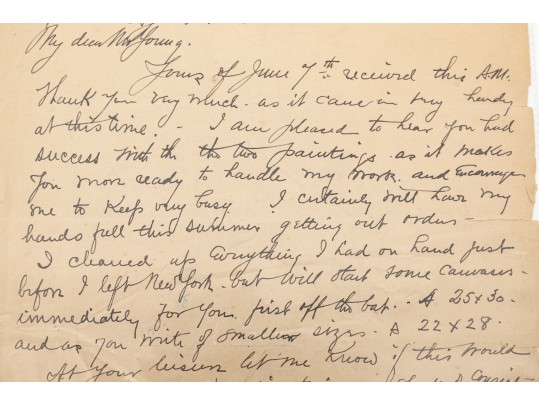 My dear Mr Young.
Yours of June 7th received this AM.
Thank you very much. as it came in very handy
at this time. - I am pleased to hear you had
success with the the two paintings. as it makes
you more ready to handle my work. and Encourages
me to Keep very busy I certainly will have my
hands full this summer getting out orders -
I cleaned up Everything I had on hand just
before I left New York. but will start some canvases -
immediately for you. first off the bat. . A 25x30.
and as you write of smaller sizes. A 22x28.
At your leisure let me know if this would